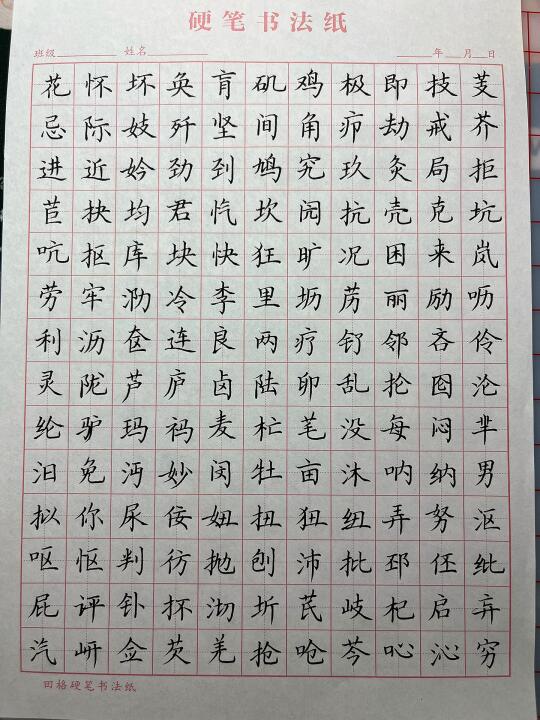 硬笔书法纸
班级 姓名 年 月 日
花怀坏奂肓矶鸡极即技芰
忌际妓歼坚间角疖劫戒芥
进近妗劲到鸠究玖灸局拒
苣抉均君忾坎闶抗壳克坑
吭抠库块快狂旷况困来岚
劳牢泐冷李里坜苈丽励呖
利沥奁连良两疗钌邻吝伶
灵陇芦庐卤陆卵乱抡囵沦
纶驴玛祃麦杧芼没每闷芈
汨免沔妙闵牡亩沐呐纳男
拟你尿佞妞扭狃纽弄努沤
呕怄判彷抛刨沛批邳伾纰
屁评钋抔沏圻芪岐杞启弃
汽岍佥芡羌抢呛芩吣沁穷
田格硬笔书法纸